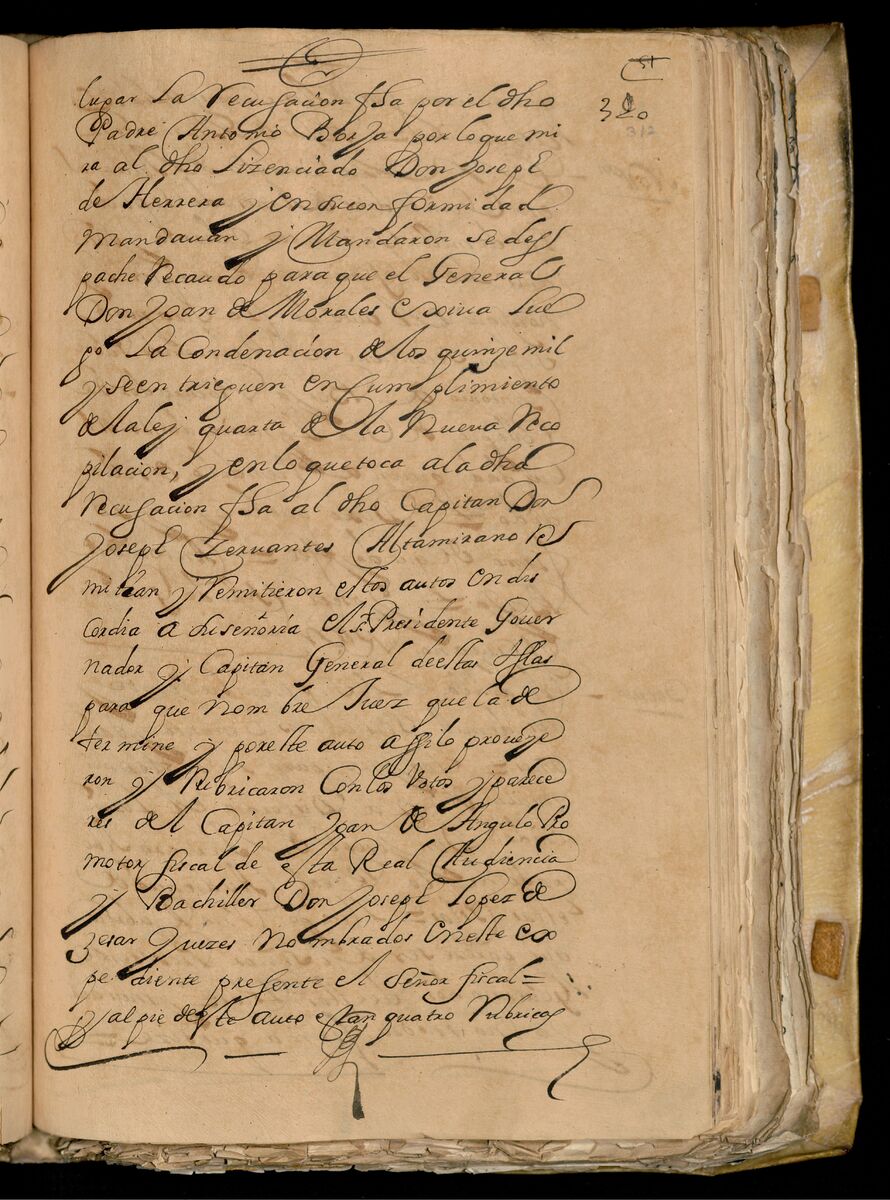 51
320
312
lugar La Recusacion fha por el dho
Padre Antonio Borja por lo que mi
ra al dho Lizenciado Don Joseph
de Herrera y en su conformidad
Mandauan y Mandaron se des
pache Recaudo para que el General
Don Joan de Morales exiua Lue
go La Condenacion de los quinze mil
y se entrieguen en Cumplimiento
de la ley quarta de la Nueva Reco
pilacion, y en lo que toca a la dha
Recusacion fha al dho Capitan Don
Joseph Zervantes Altamirano Re
mitian y Remitieron estos autos en dis
cordia a su señoria el sr. Presidente Gouer
nador y Capitan General de estas Yslas
para que nombre Juez que la de
termine y por este auto assi lo proueye
ron y Rubricaron Con los Votos y parece
res del Capitan Joan de Angulo Pro
motor fiscal de esta Real Audiencia
y Bachiller Don Joseph Lopez de
zesar Juezes Nombrados en este ex
pediente presente el señor fiscal=
y al pie de este auto estan quatro Rubricas